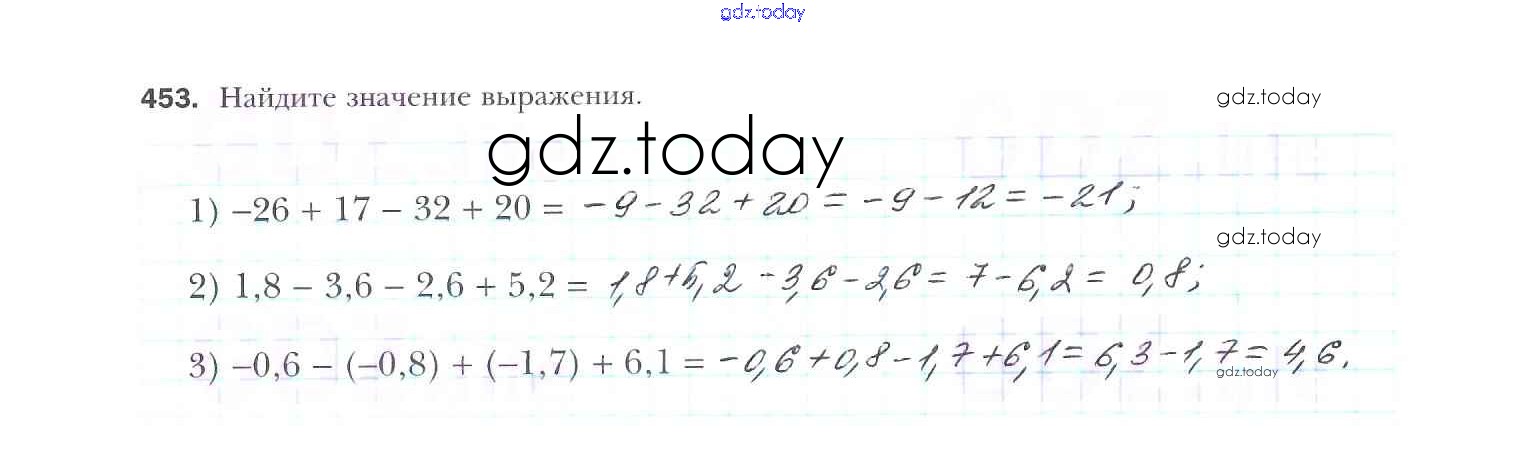 gdz.today
453. Найдите значение выражения.
gdz.today
gdz.today
1) –26 + 17 – 32 + 20 = -9-32+20=-9-12=-21;
gdz.today
2) 1,8 – 3,6 – 2,6 + 5,2 = 1,8+5,2-3,6-2,6=7-6,2=0,8;
3) –0,6 – (–0,8) + (–1,7) + 6,1 = -0,6+0,8-1,7+6,1=6,3-1,7=4,6.
gdz.today